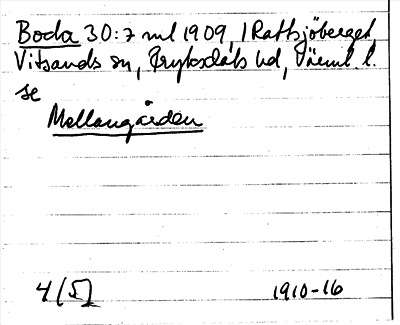 Boda 30:7 ml 1909, 1 Rattsjöberget,
Vitsands sn, Fryksdals hd, Värml. l.
se
Mellangården
4 [5] 1910-16